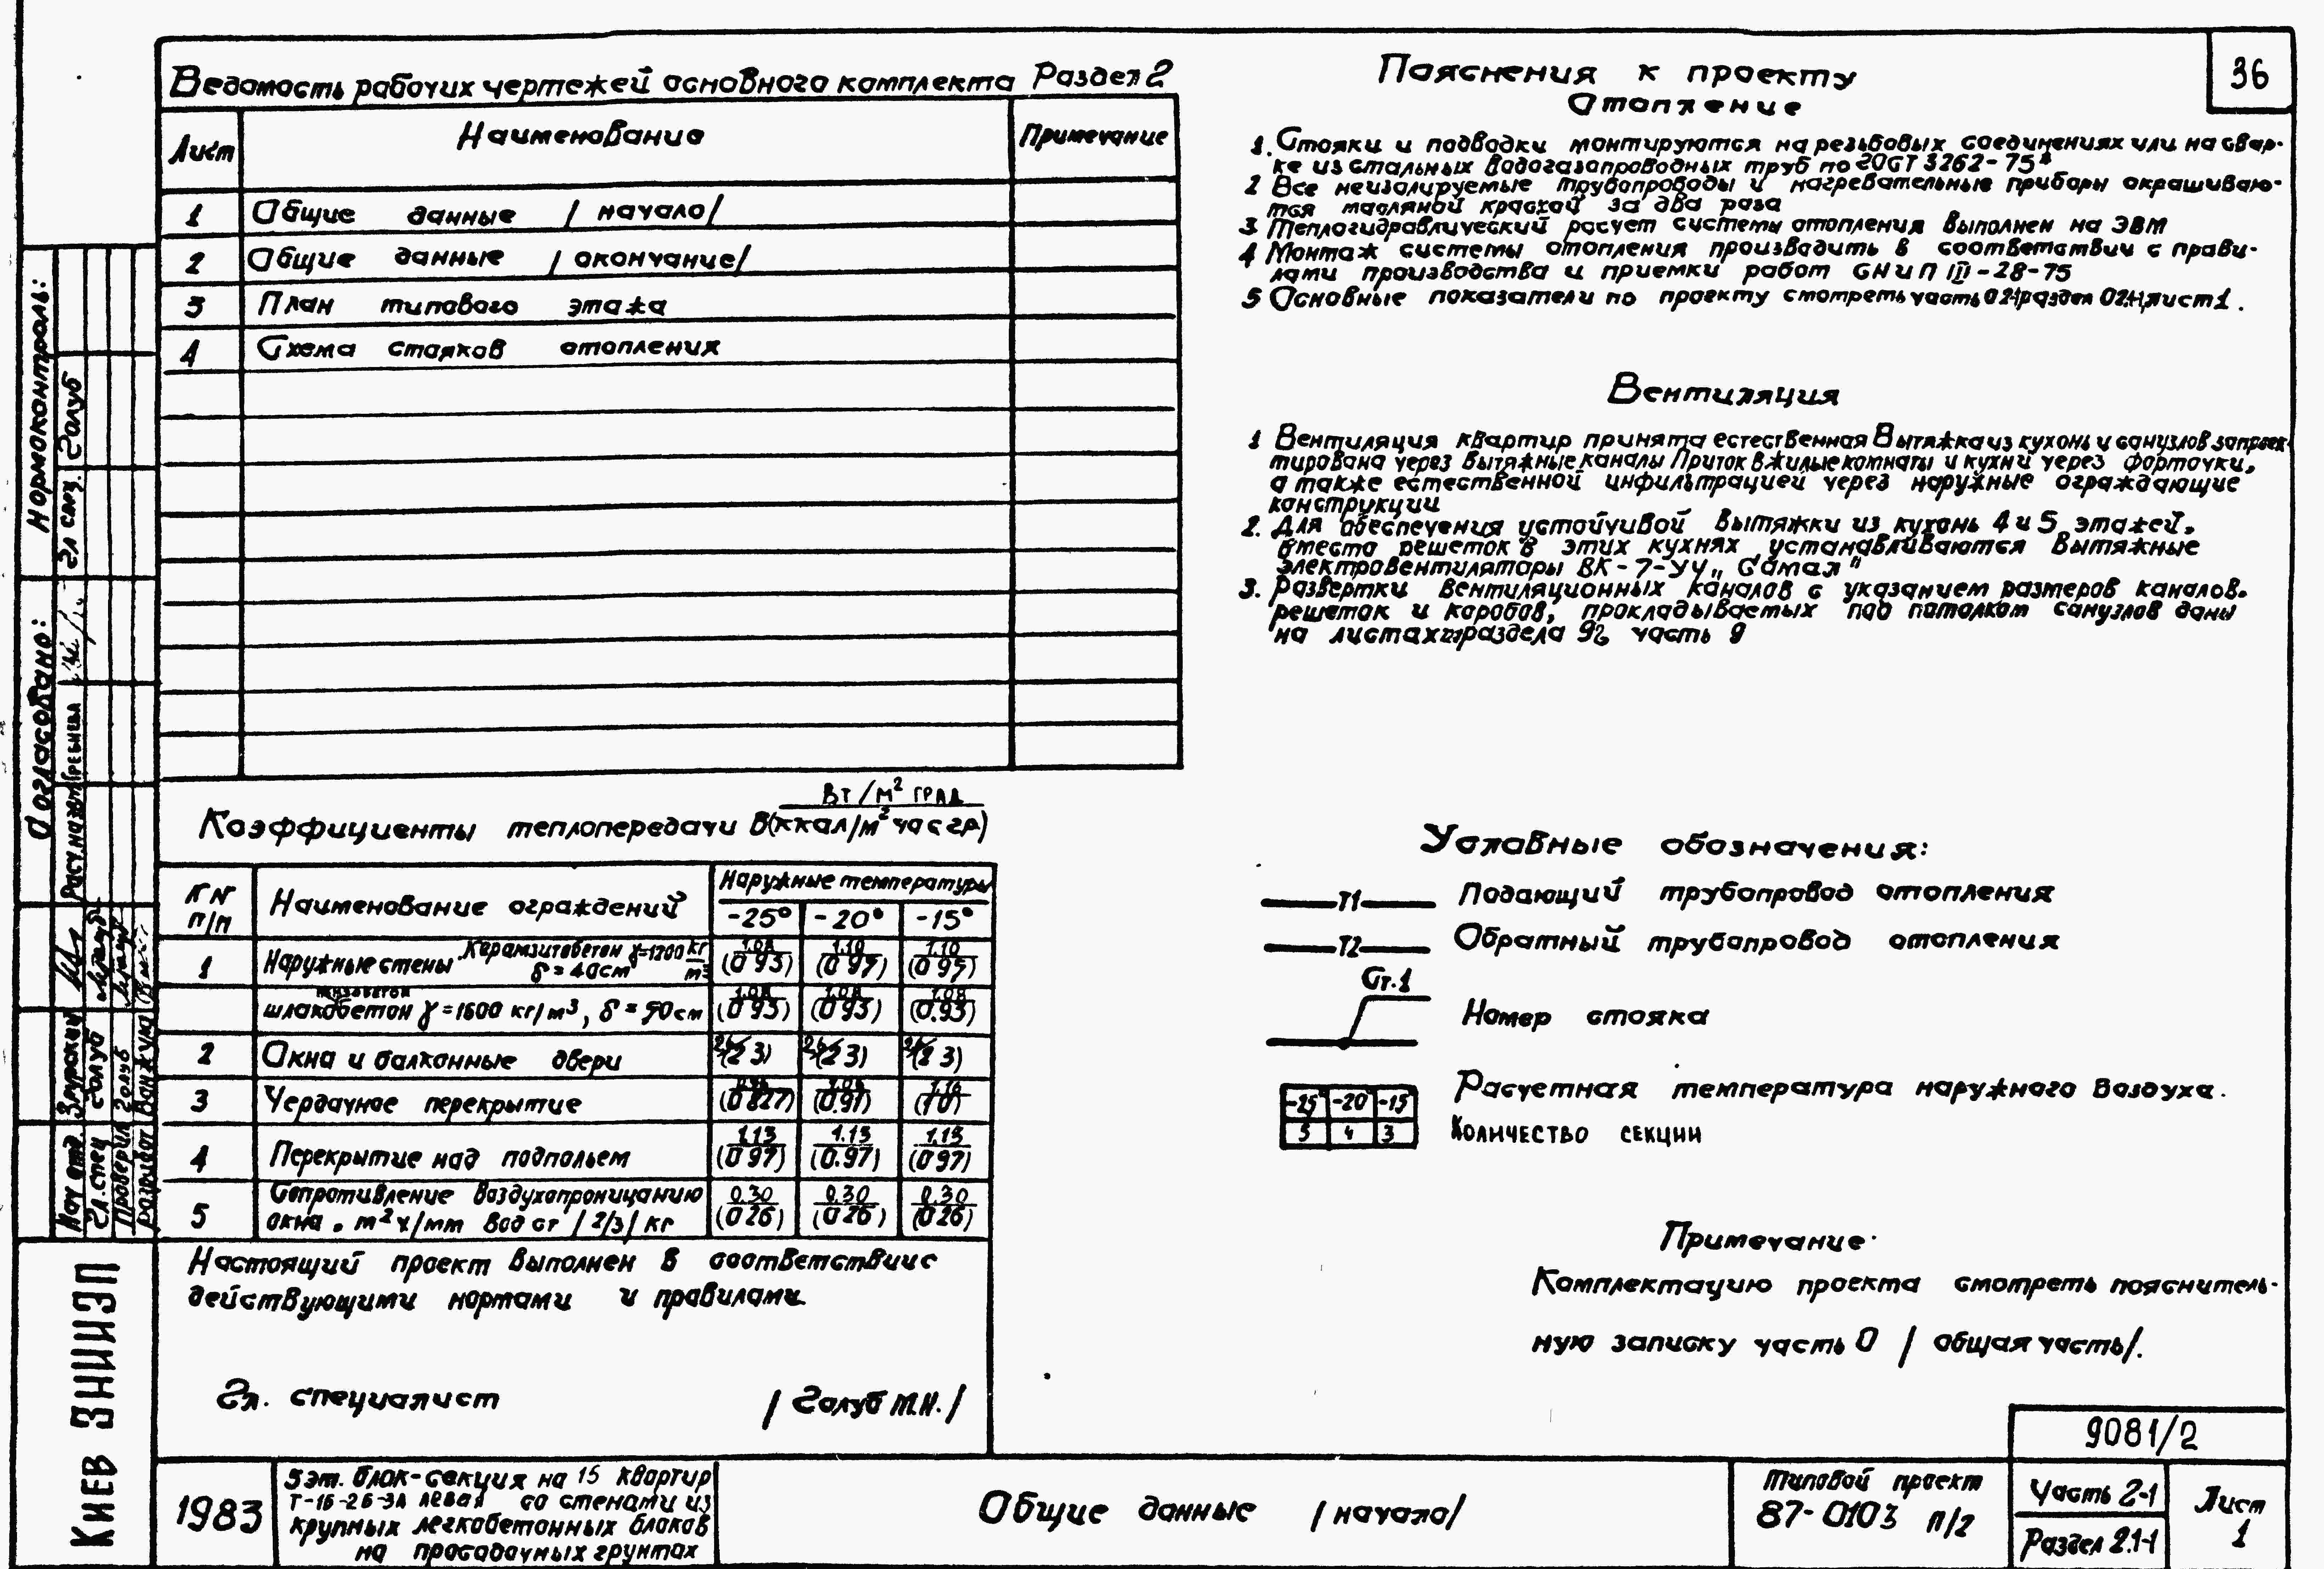 36
Ведомость рабочих чертежей основного комплекта Раздел 2
Лист Наименование Примечание
1 Общие данные /начало/
2 Общие данные /окончание/
3 План типового этажа
4 Схема стояков отопления
Пояснения к проекту
Отопление
1. Стояки и подводки монтируются на резьбовых соединениях или на свар-
ке из стальных водогазопроводных труб по ГОСТ 3262-75*
2 Все неизолируемые трубопроводы и нагревательные приборы окрашиваю-
тся масляной краской за два раза
3 Теплогидравлический расчет системы отопления выполнен на ЭВМ
4 Монтаж системы отопления производить в соответствии с прави-
лами производства и приемки работ СНиП III-28-75
5 Основные показатели по проекту смотреть часть раздел лист 1.
Вентиляция
1 Вентиляция квартир принята естественная Вытяжка из кухонь и санузлов запроек-
тирована через вытяжные каналы Приток в жилые комнаты и кухни через форточки,
а также естественной инфильтрацией через наружные ограждающие
конструкции
2. Для обеспечения устойчивой вытяжки из кухонь 4 и 5 этажей,
вместо решеток в этих кухнях устанавливаются вытяжные
электровентиляторы ВК-7-УЧ „Самал"
3. Развертки вентиляционных каналов с указанием размеров каналов.
решеток и коробов, прокладываемых под потолком санузлов даны
на листах раздела часть 9
Коэффициенты теплопередачи в Вт/м² град
(ккал/м² час гр)
NN п/п Наименование ограждений Наружные температуры
-25° -20° -15°
1 Наружные стены Керамзитобетон γ=1200 кг/м³ δ=40см 1.08 (0 93) 1.10 (0 95) 1.10 (0 95)
шлакобетон γ=1600 кг/м³, δ=50см 1.08 (0 93) 1.08 (0 93) 1.08 (0.93)
2 Окна и балконные двери (2 3) (2 3) (2 3)
3 Чердачное перекрытие (0 827) (0.91) 1.16 (1 0)
4 Перекрытие над подпольем 1.13 (0 97) 1.13 (0.97) 1.13 (0 97)
5 Сопротивление воздухопроницанию
окна. м²ч/мм вод ст /2/3/ кг 0.30 (0 26) 0.30 (0 26) 0.30 (0 26)
Настоящий проект выполнен в соответствии с
действующими нормами и правилами.
Гл. специалист /Голуб М.Н./
Условные обозначения:
Т1 Подающий трубопровод отопления
Т2 Обратный трубопровод отопления
Ст.1
Номер стояка
-25° -20° -15 Расчетная температура наружного воздуха.
5 4 3 Количество секции
Примечание.
Комплектацию проекта смотреть пояснитель-
ную записку часть 0 /общая часть/.
9081/2
1983
5 эт. блок-секция на 15 квартир
Т-1Б-2Б-3Л левая со стенами из
крупных легкобетонных блоков
на просадочных грунтах
Общие данные /начало/
Типовой проект
87-0103 п/2
Часть 2-1
Раздел 2.1-1
Лист
1
Нормоконтроль:
Гл спец. Голуб
Согласовано:
Нач отд.
Гл. спец Голуб
Проверил Голуб
Разработ Ванжула
Киев ЗНИИЭП